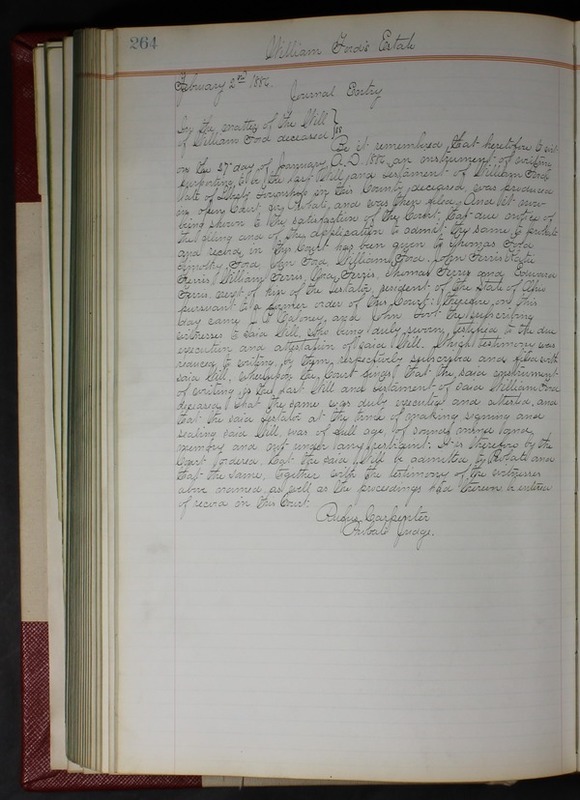 264
William Ford's Estate
February 2nd 1886.
Journal Entry
In the matter of the Will
of William Ford deceased } ss
Be it remembered that heretofore to wit:
on the 27 day of January A.D. 1886 an instrument of writing
purporting to be the last Will and testament of William Ford
late of Liberty Township in this County, deceased, was produced
in open Court, for Probate, and was then filed; And it now
being shown to the satisfaction of the Court, that due notice of
the filing and of the application to admit the same to probate
and record in this Court has been given to Thomas Ford
Timothy Ford, John Ford, William Ford, John Ferris, Kate
Ferris, William Ferris, Nora Ferris, Thomas Ferris and Edward
Ferris next of kin of the testator, resident of the State of Ohio
pursuant to a former order of this Court: Therefore, on this
day came Maloney, and John the subscribing
witnesses to said Will, who being duly sworn, testified to the due
execution and attestation of said Will. Which testimony was
reduced to writing, by them, respectively subscribed and filed with
said Will, whereupon the Court finds that the said instrument
of writing is the last Will and testament of said William Ford
deceased, that the same was duly executed and attested, and
that the said testator at the time of making signing and
sealing said Will, was of full age, of sound mind and
memory and not under any restraint: It is therefore by the
Court Ordered, that the said Will be admitted to Probate and
that the same, together with the testimony of the witnesses
above named, as well as the proceedings had therein be entered
of record in this Court.
Rufus Carpenter
Probate Judge.